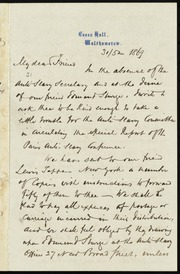 Essex Hall,
Walthamstow.
30/5m 1869
My dear Friend
In the absence of the
Anti-Slavery Secretary and at the desire
of our friend Edmund Sturge, I write to
ask thee to be kind enough to take a
little trouble for the Anti Slavery Committee
in circulating the Special Report of the
Paris Anti Slavery Conference.
We have sent to our friend
Lewis Tappan New York a number
of Copies with instructions to forward
fifty of them to thee — We shall be
glad to pay all expenses of postage or
carriage incurred in their distribution
and we shall feel obliged by thy drawing
upon Edmund Sturge at the Anti Slavery
Office 27 New Broad Street, unless